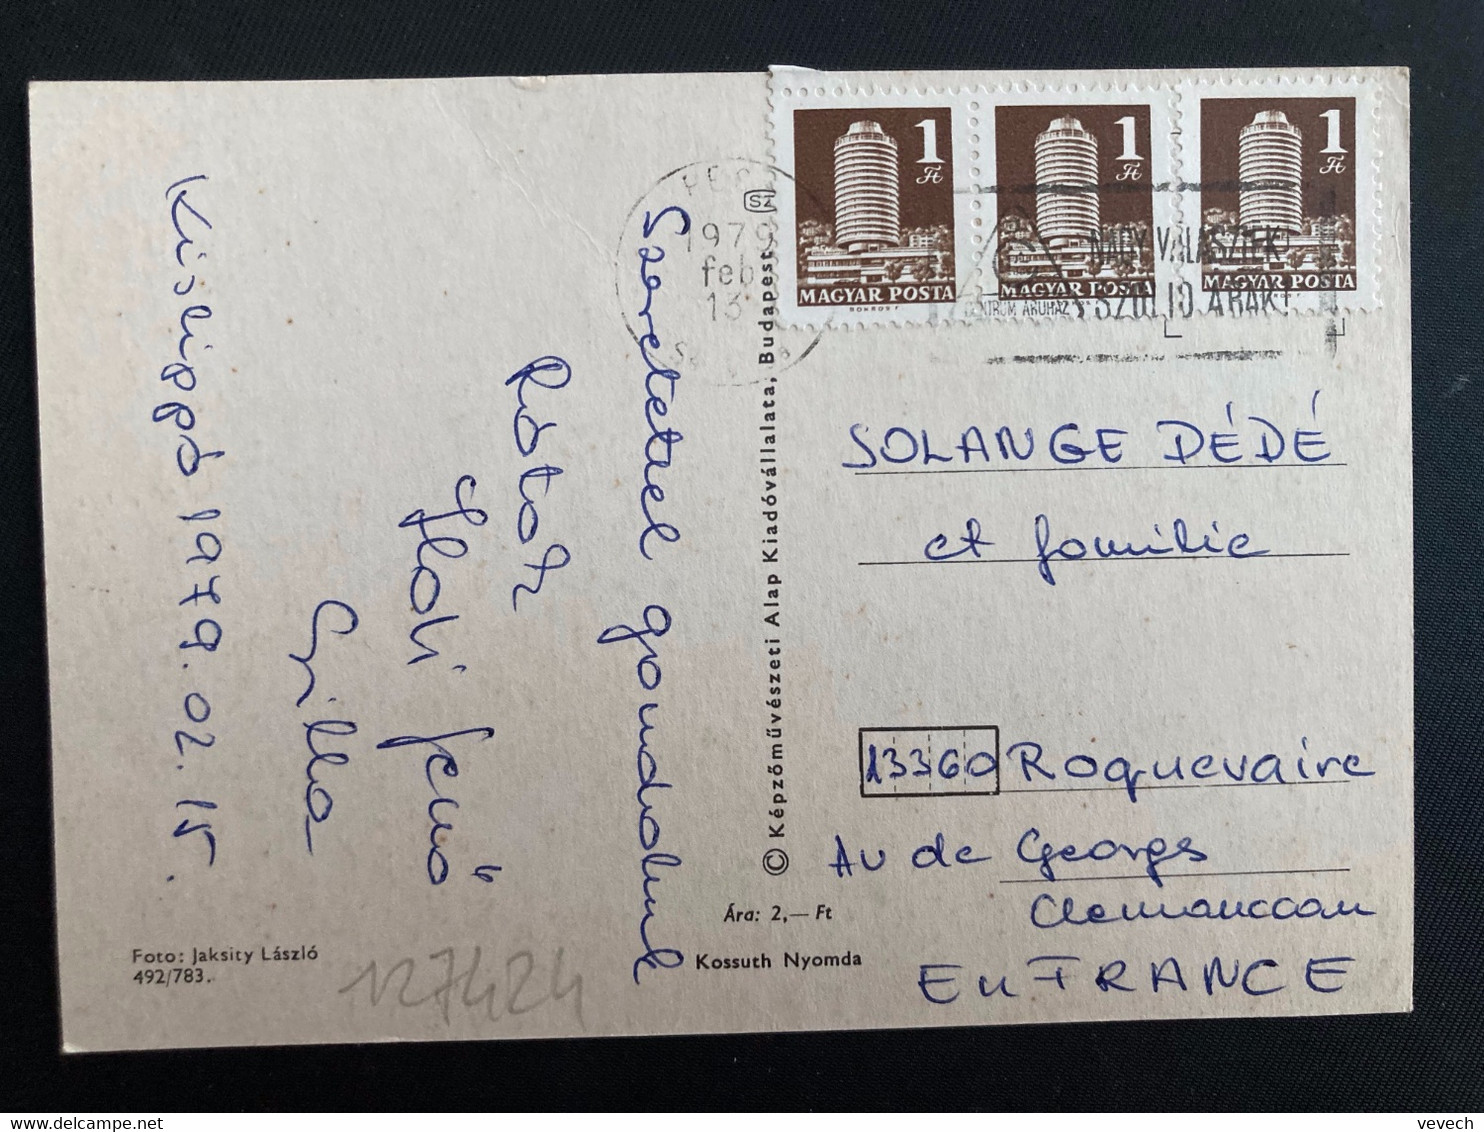 Szeretettel gondolunk
Rátok
Ildi Jenő
Csilla
Kislippó 1979.02.15.
Foto: Jaksity László
492/783.
127424
© Képzőművészeti Alap Kiadóvállalata, Budapest
SZ
Ára: 2,— Ft
Kossuth Nyomda
1 Ft
MAGYAR POSTA
1 Ft
MAGYAR POSTA
1 Ft
MAGYAR POSTA
1979
feb
13
NAGY VÁLASZTÉK
SZOLID ÁRAK!
CENTRUM ÁRUHÁZ
SOLANGE DÉDÉ
et famille
13360 Roquevaire
Av de Georges
Clemanccau
En FRANCE
vevech